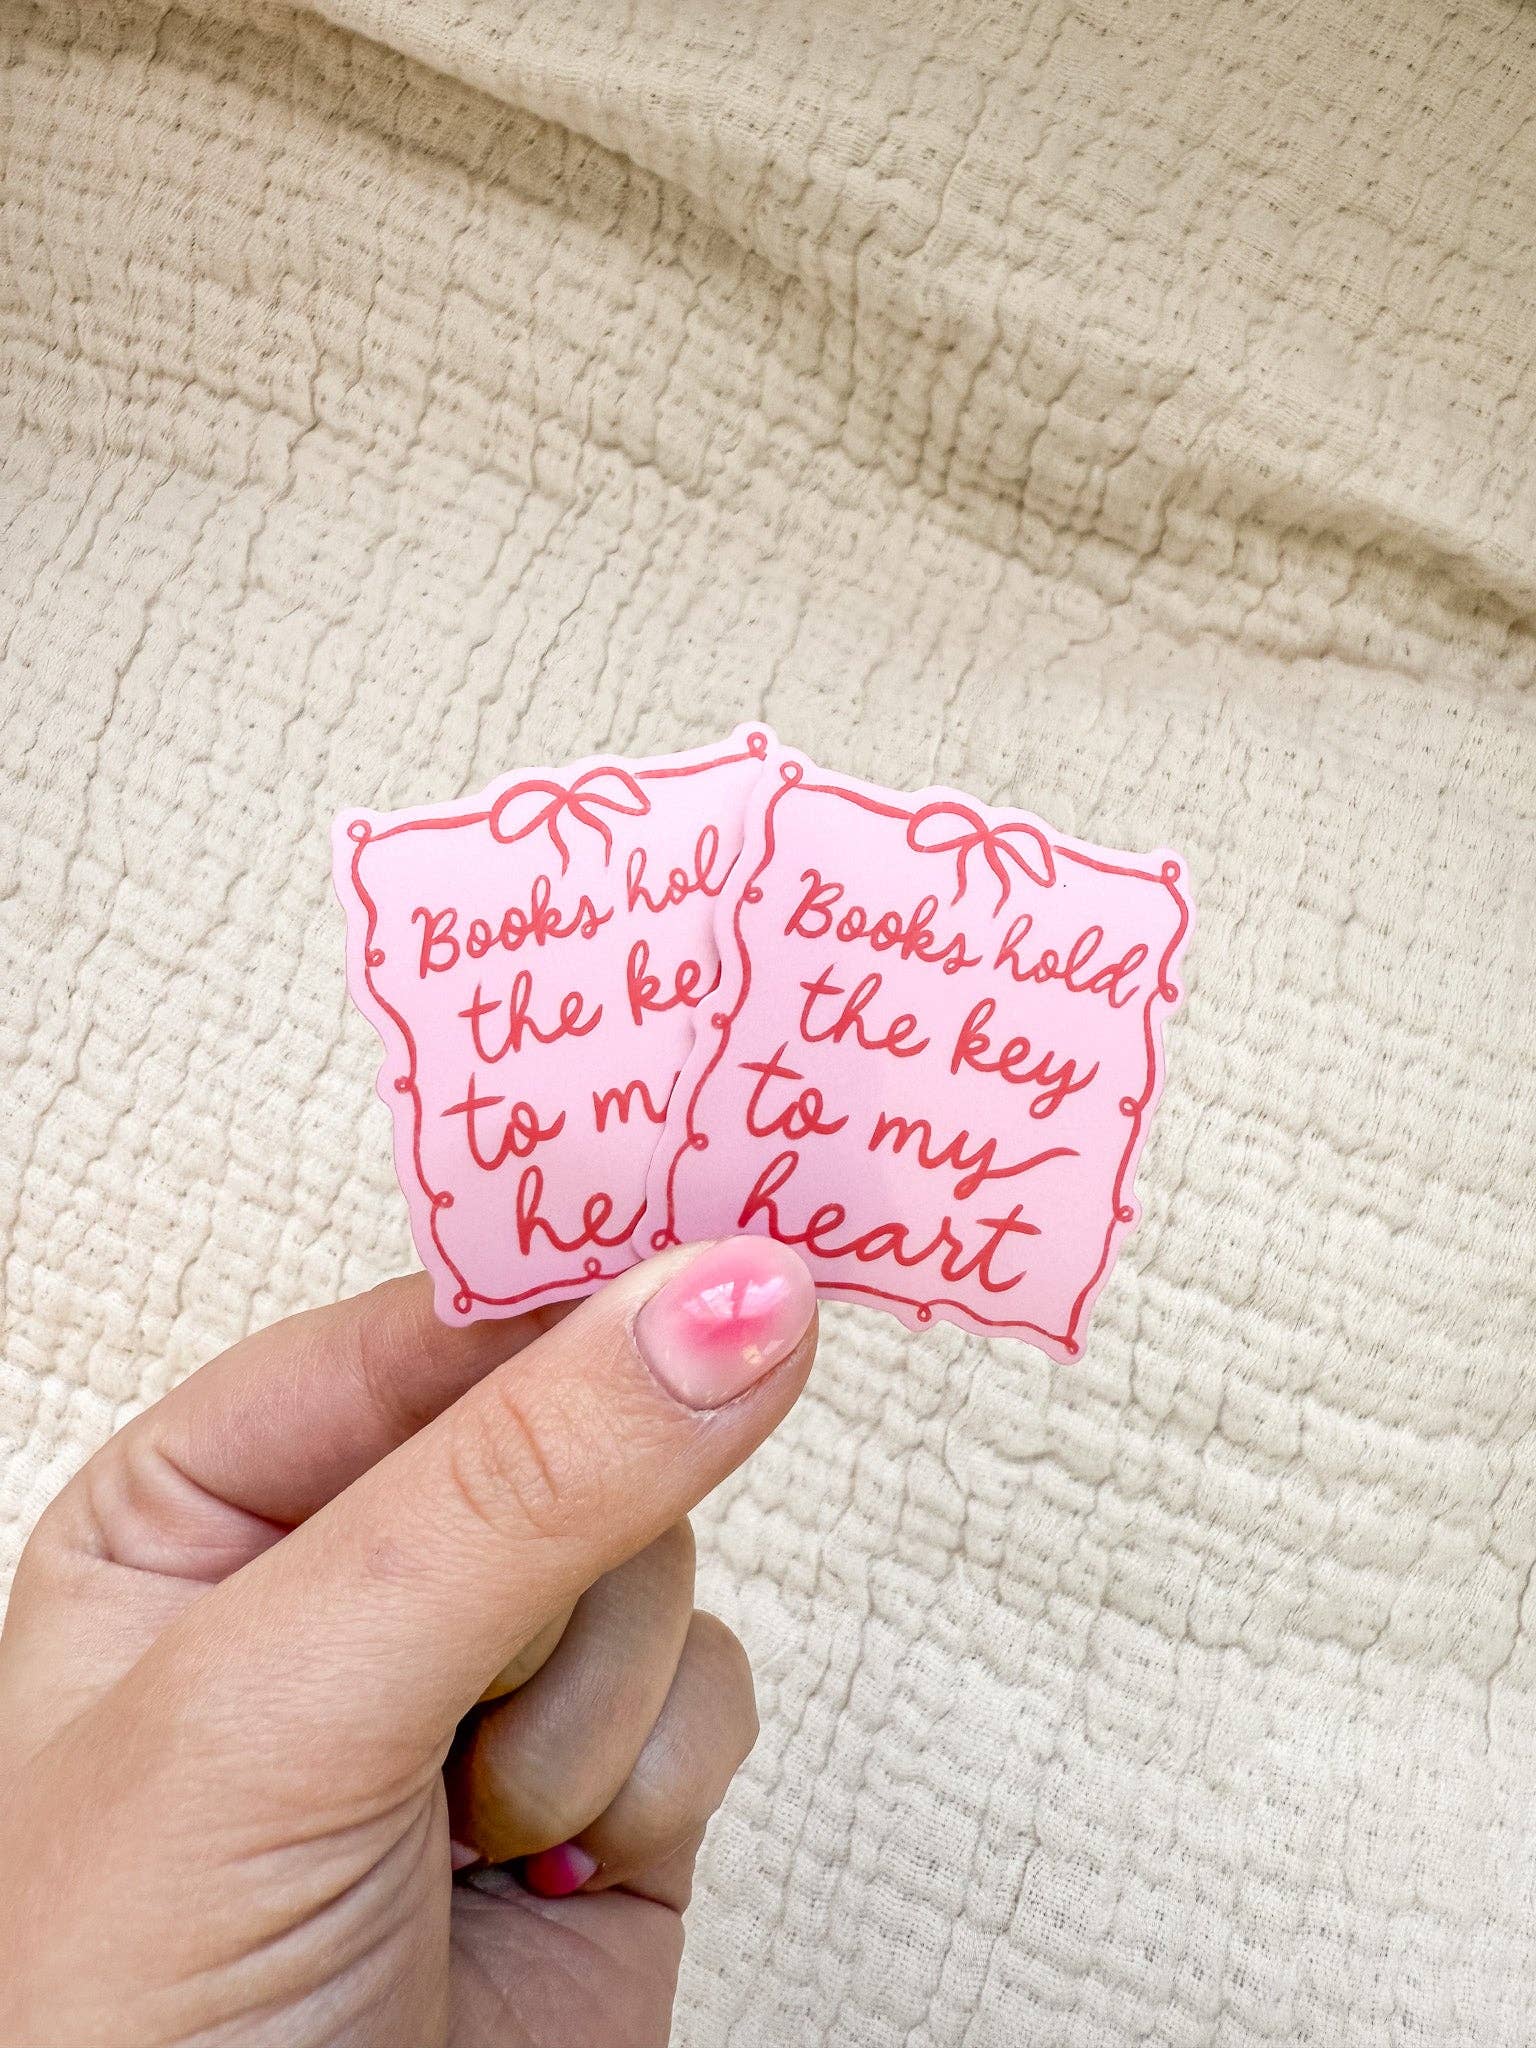 Books hol
the ke
to m
he
Books hold
the key
to my
heart